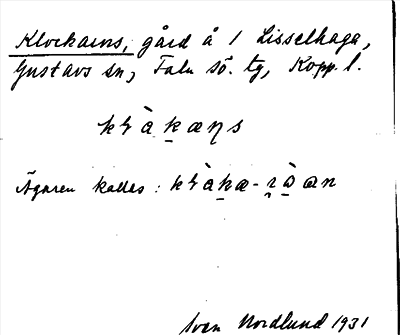 Klockarns, gård å 1 Lisselhaga,
Gustavs sn, Falu sö. tg, Kopp. l.
kràkæns
Ägaren kallas:
Ivan Nordlund 1931